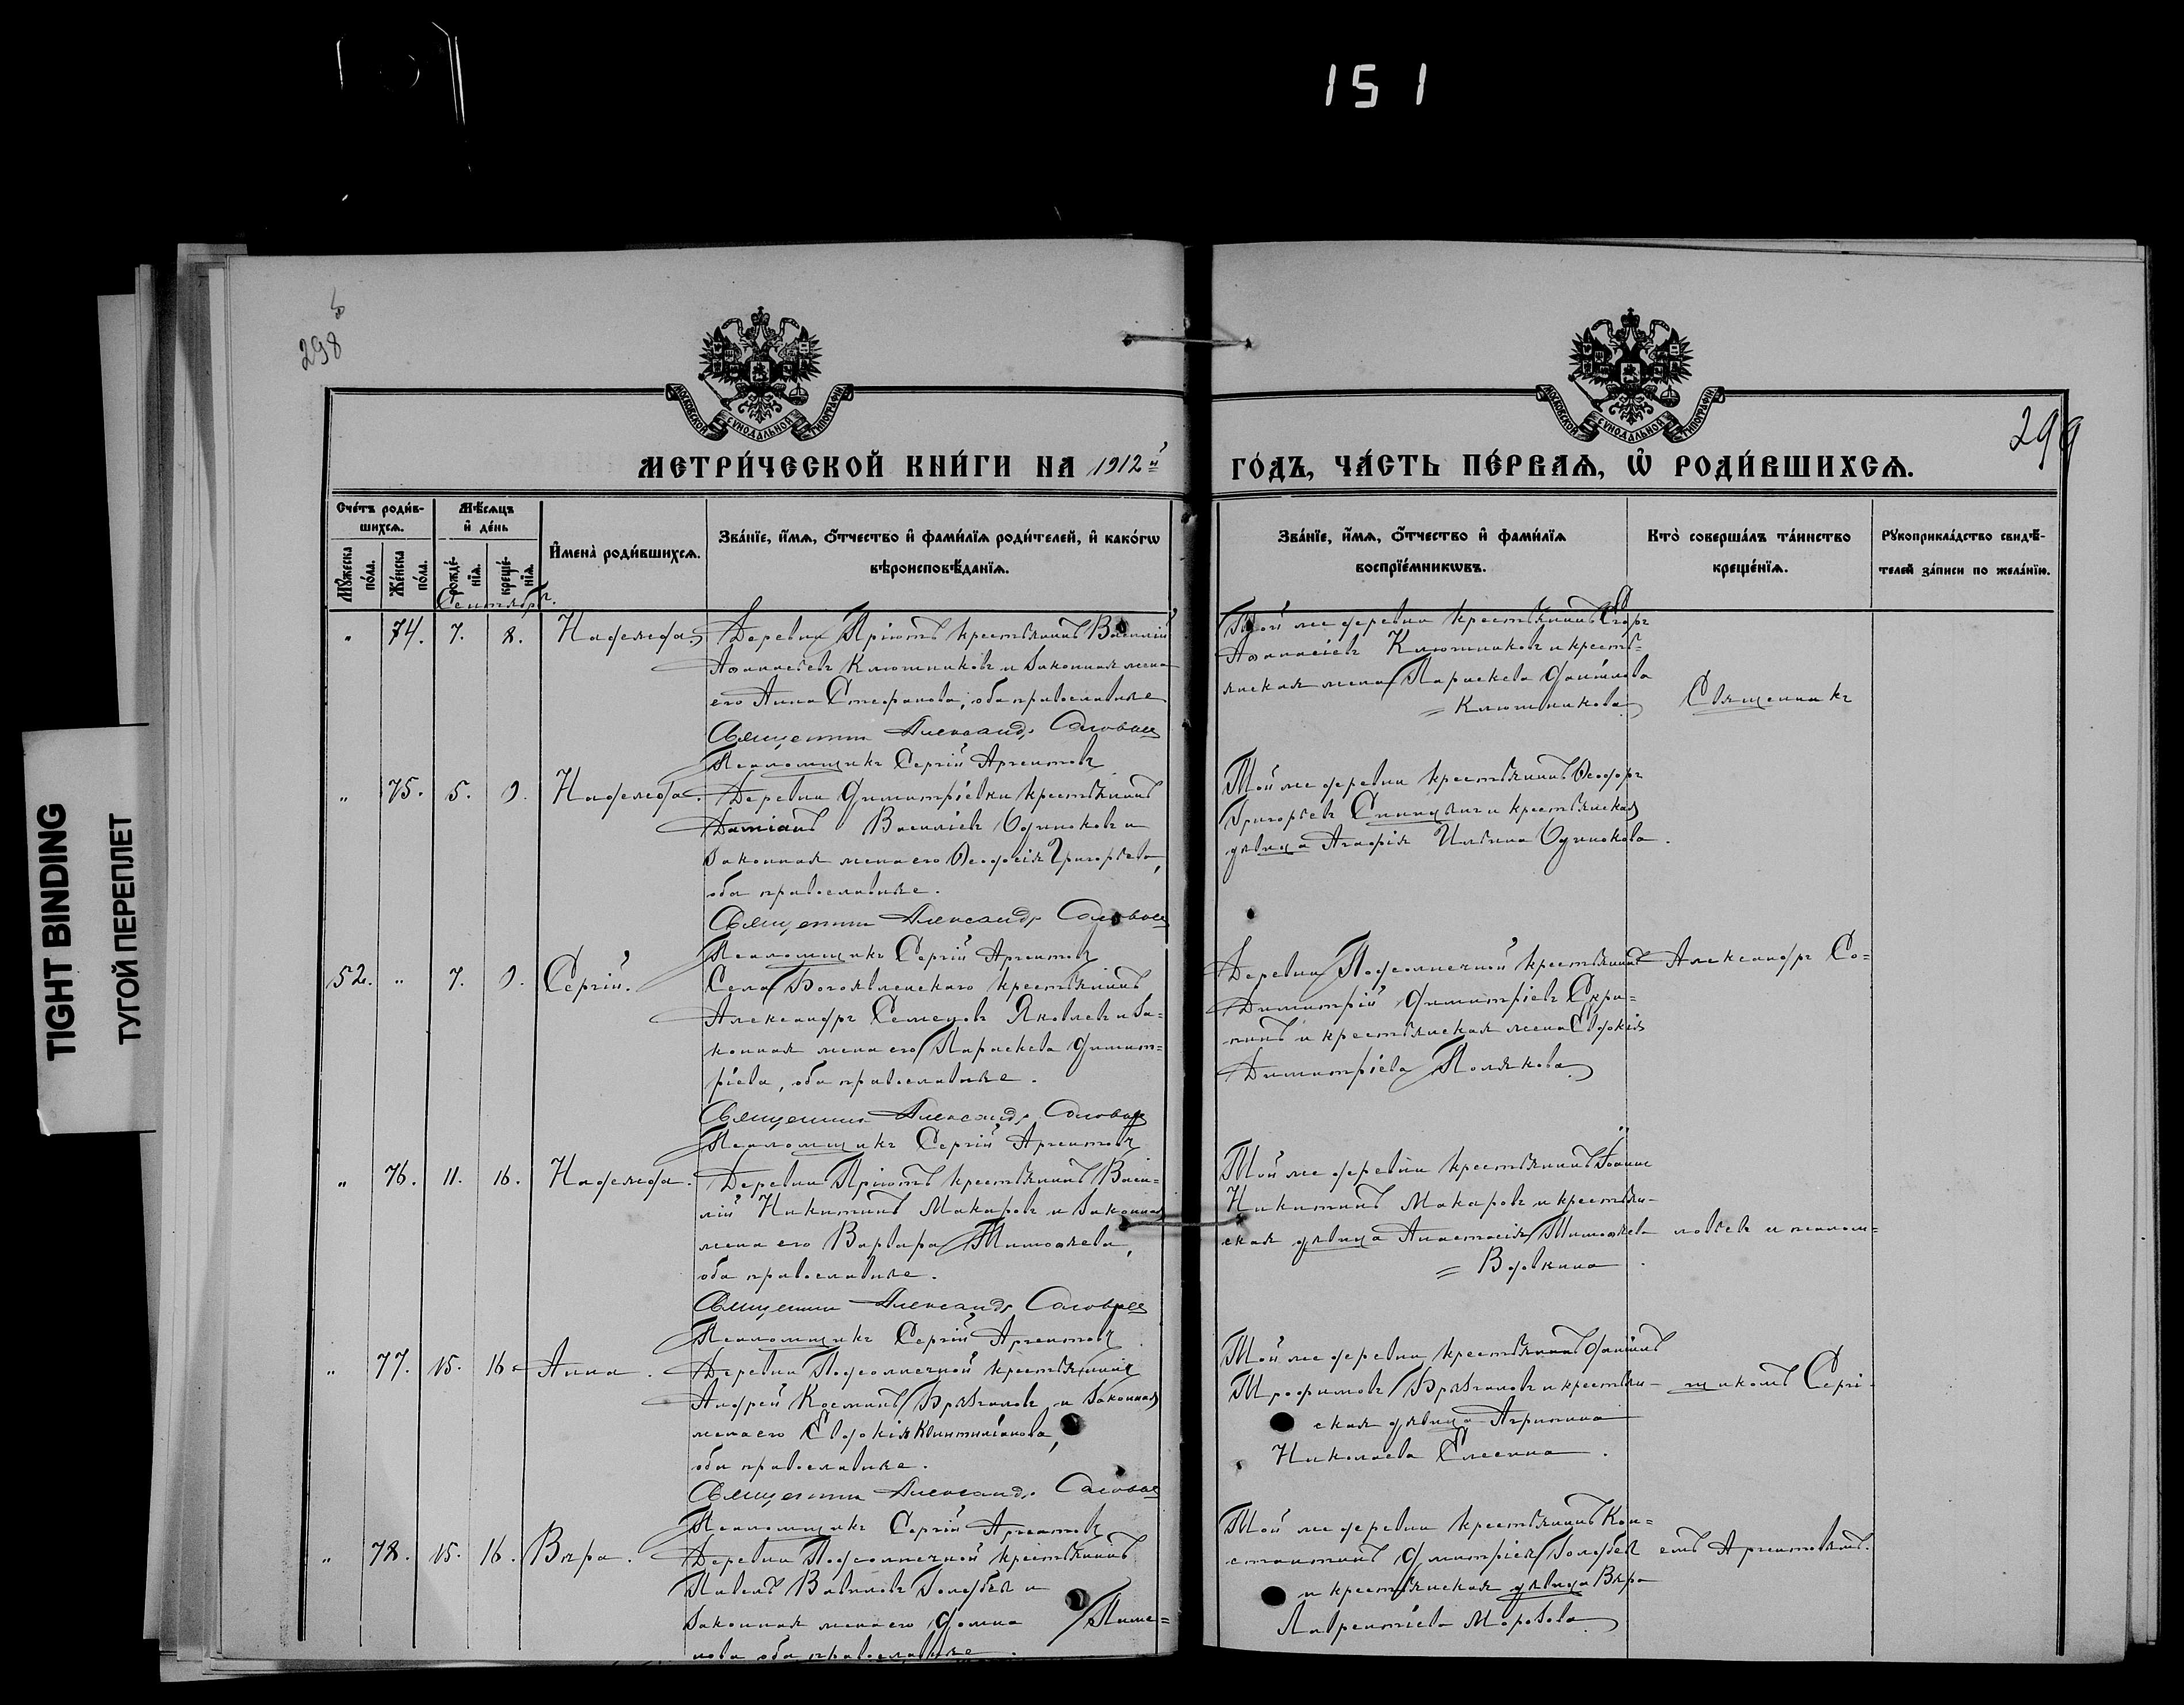 151
298
299
TIGHT BINDING
ТУГОЙ ПЕРЕПЛЕТ
МОСКОВСКОЙ СУНОДАЛЬНОЙ ТИПОГРАФІИ
МОСКОВСКОЙ СУНОДАЛЬНОЙ ТИПОГРАФІИ
МЕТРИ́ЧЕСКОЙ КНИ́ГИ НА 1912й
ГО́ДЪ, ЧА́СТЬ ПЕ́РВАѦ, Ѡ РОДИ́ВШИХСѦ.
Сче́тъ роди́в-
шихсѧ.
Мꙋжеска по́ла.
Же́нска по́ла.
Мѣ́сяцъ
и҆ де́нь
рожде́-
нїѧ.
креще́-
нїѧ.
И҆мена̀ роди́вшихсѧ.
Зва́нїе, и҆́мѧ, ѻ҆́тчество и҆ фами́лїѧ роди́телей, и҆ како́гѡ
вѣроисповѣ́данїѧ.
Зва́нїе, и҆́мѧ, ѻ҆́тчество и҆ фами́лїѧ
воспрїе́мникѡвъ.
Кто̀ соверша́лъ та́инство
креще́нїѧ.
Рꙋкоприкла́дство свидѣ́-
телей за́писи по жела́нїю.
Сентябрь.
" 74. 7. 8. Надежда
Деревни Пріютъ крестьянинъ Василій
Аѳанасьевъ Ключниковъ и законная жена
его Анна Стефанова, оба православные
Священникъ Александръ Соловьев
Псаломщикъ Сергій Аргентовъ
Той же деревни крестьянинъ
Аѳанасіевъ Ключниковъ и кресть-
янская жена Параскева
= Ключникова
Священникъ
" 75. 5. 9. Надежда.
Деревни Димитріевки крестьянинъ
Даміанъ Василіевъ Одиноковъ и
законная жена его Ѳеодосія Григорьева,
оба православные.
Священникъ Александръ Соловьев
Псаломщикъ Сергій Аргентовъ
Той же деревни крестьянинъ Ѳеодоръ
Григорьевъ и крестьянская
дѣвица Агафія Ильина Одинокова.
52. " 7. 9. Сергій.
Села Богоявленскаго крестьянинъ
Александръ Семеновъ Яковлевъ и за-
конная жена его Параскева Димит-
ріева, оба православные.
Священникъ Александръ Соловьев
Псаломщикъ Сергій Аргентовъ
Деревни Подсолнечной крестьянинъ
Димитрій Димитріевъ Скри-
пинъ и крестьянская жена Евдокія
Димитріева Полякова
Александръ Со-
" 76. 11. 16. Надежда.
Деревни Пріютъ крестьянинъ Васи-
лій Никитинъ Макаровъ и законная
жена его Варвара Тимоѳеева,
оба православные.
Священникъ Александръ Соловьев
Псаломщикъ Сергій Аргентовъ
Той же деревни крестьянинъ Іоаннъ
Никитинъ Макаровъ и крестьян-
ская дѣвица Анастасія Тимоѳеева
= Вдовкина
ловьевъ и псалом-
" 77. 15. 16. Анна.
Деревни Подсолнечной крестьянинъ
Андрей Косминъ Брязгаловъ и законная
жена его Евдокія Квинтиліанова,
оба православные.
Священникъ Александръ Соловьев
Псаломщикъ Сергій Аргентовъ
Той же деревни крестьянинъ Даніилъ
Трофимовъ Брязгаловъ и крестьян-
ская дѣвица Агрипина
Николаева
щикомъ Сергі-
" 78. 15. 16. Вѣра.
Деревни Подсолнечной крестьянинъ
Павелъ Вавиловъ Голубев и
законная жена его Домна Пиме-
нова оба православные.
Той же деревни крестьянинъ Кон-
стантинъ Димитріев Голубев
и крестьянская дѣвица Вѣра
Лаврентіева Морозова
емъ Аргентовымъ.